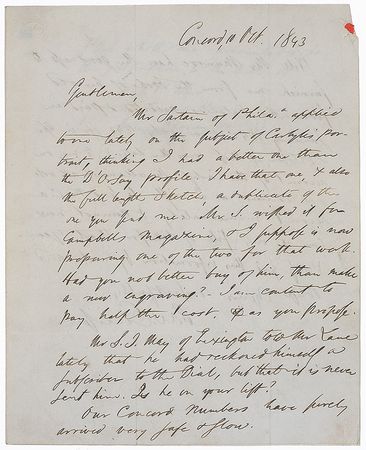 Concord, 10 Oct. 1843
Gentlemen,
Mr Sartain of Phila.ᵃ applied
to me lately on the subject of Carlyle's por-
trait, thinking I had a better one than
the D'Orsay profile. I have that one, & also
the full length sketch, a duplicate of the
one you send me. Mr. S. wished it for
Campbells Magazine, & I suppose is now
preparing one of the two for that work.
Had you not better buy of him, than make
a new engraving? I am content to
pay half the cost, as you propose.
Mr S. J. May of Lexington told Mr Lane
lately that he had reckoned himself a
subscriber to the Dial, but that it is never
sent him. Is he on your list?
Our Concord numbers have surely
arrived very safe & slow.